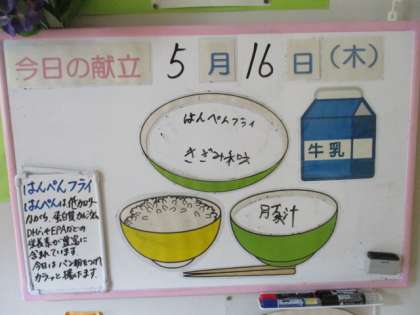 今日の献立 5月16日(木)
はんぺんフライ
きざみ和え
牛乳
豚汁
はんぺんフライ
はんぺんは低カロリー
ながら、蛋白質、カルシウム、
DHAやEPAなどの
栄養素が豊富に
含まれています
今日はパン粉をつけて
カラッと揚げます